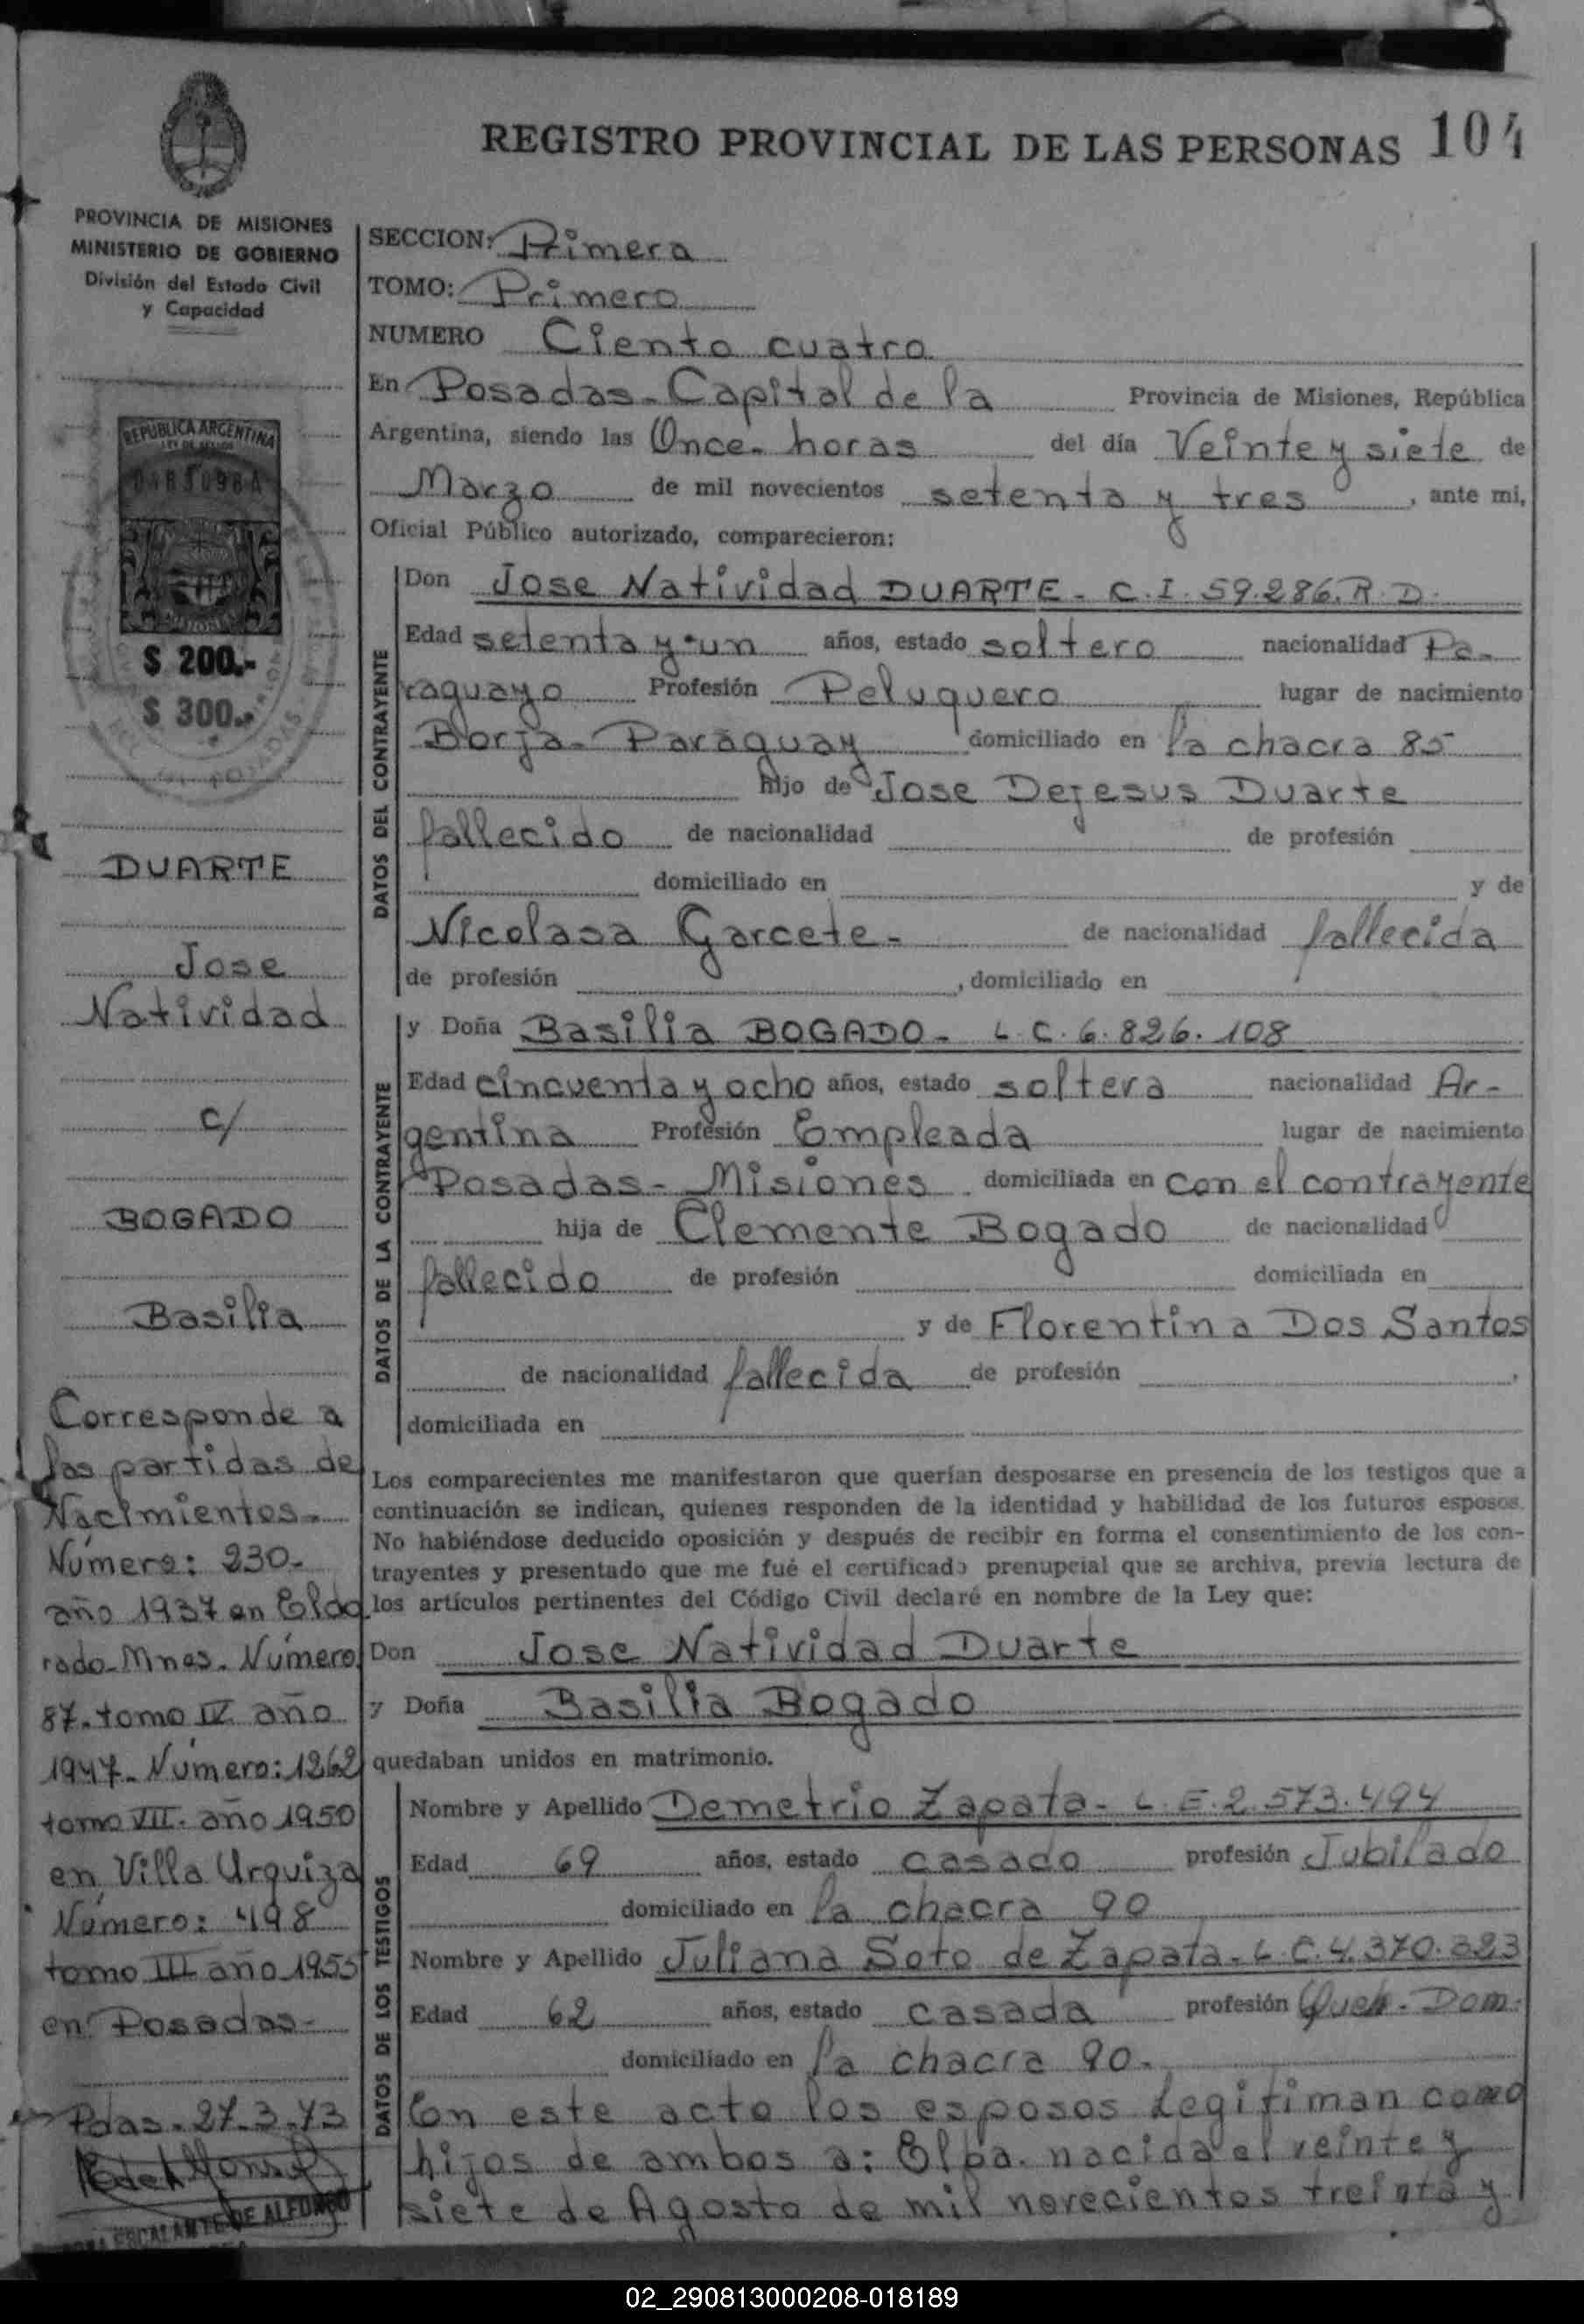 REGISTRO PROVINCIAL DE LAS PERSONAS 104
PROVINCIA DE MISIONES
MINISTERIO DE GOBIERNO
División del Estado Civil
y Capacidad
REPUBLICA ARGENTINA
LEY DE SELLOS
$ 200.-
$ 300.-
DUARTE
Jose
Natividad
c/
BOGADO
Basilia
Corresponde a
las partidas de
Nacimientos.-
Número: 230-
año 1937 en Eldo
rado-Mnes. Número
87. tomo IV año
1947- Número: 1262
tomo VII. año 1950
en Villa Urquiza
Número: 498
tomo III año 1955
en Posadas-
Pdas. 27-3-73
ESCALANTE DE ALFONSO
SECCION: Primera
TOMO: Primero
NUMERO Ciento cuatro
En Posadas- Capital de la Provincia de Misiones, República
Argentina, siendo las Once- horas del día Veinte y siete de
Marzo de mil novecientos setenta y tres, ante mi,
Oficial Público autorizado, comparecieron:
DATOS DEL CONTRAYENTE
Don Jose Natividad DUARTE- C.I. 59.286.R.D.
Edad setenta y un años, estado soltero nacionalidad Pa-
raguayo Profesión Peluquero lugar de nacimiento
Borja- Paraguay domiciliado en la chacra 85
hijo de Jose Dejesus Duarte
fallecido de nacionalidad de profesión
domiciliado en y de
Nicolasa Garcete- de nacionalidad fallecida
de profesión , domiciliado en
DATOS DE LA CONTRAYENTE
y Doña Basilia BOGADO- L.C. 6.826.108
Edad cincuenta y ocho años, estado soltera nacionalidad Ar-
gentina Profesión Empleada lugar de nacimiento
Posadas- Misiones domiciliada en con el contrayente
hija de Clemente Bogado de nacionalidad
fallecido de profesión domiciliada en
y de Florentina Dos Santos
de nacionalidad fallecida de profesión ,
domiciliada en
Los comparecientes me manifestaron que querían desposarse en presencia de los testigos que a
continuación se indican, quienes responden de la identidad y habilidad de los futuros esposos.
No habiéndose deducido oposición y después de recibir en forma el consentimiento de los con-
trayentes y presentado que me fué el certificado prenupcial que se archiva, previa lectura de
los artículos pertinentes del Código Civil declaré en nombre de la Ley que:
Don Jose Natividad Duarte
y Doña Basilia Bogado
quedaban unidos en matrimonio.
DATOS DE LOS TESTIGOS
Nombre y Apellido Demetrio Zapata- L.E. 2.573.494
Edad 69 años, estado casado profesión Jubilado
domiciliado en la chacra 90
Nombre y Apellido Juliana Soto de Zapata- L.C. 4.370.323
Edad 62 años, estado casada profesión Queh. Dom.
domiciliado en la chacra 90.
En este acto los esposos legitiman como
hijos de ambos a: Elba. nacida el veinte y
siete de Agosto de mil novecientos treinta y
02_290813000208-018189